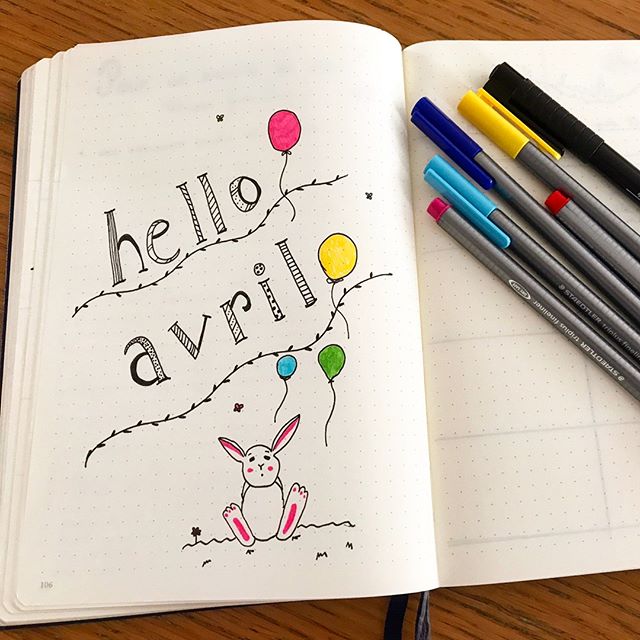 hello
avril
106
STAEDTLER triplus fineliner
STAEDTLER triplus fineliner